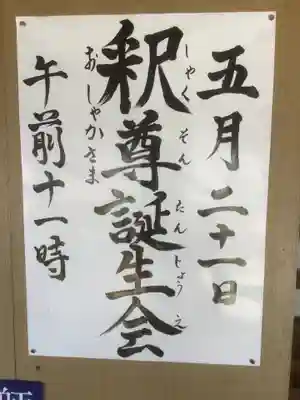 五月二十一日
しゃくそんたんじょうえ
釈尊誕生会
おしゃかさま
午前十一時